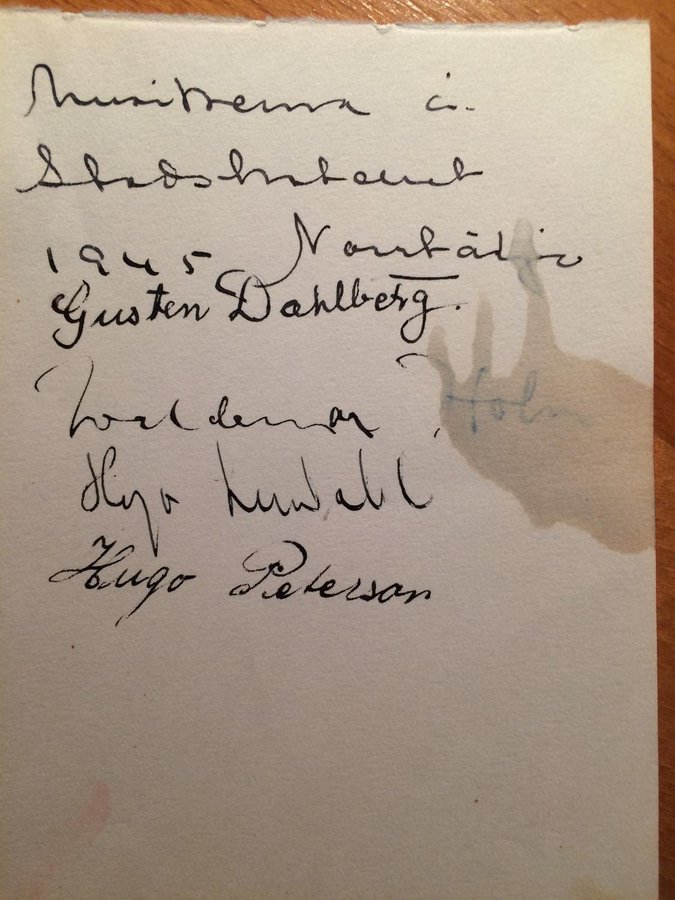 Musikerna i.
Stadshotellet
1945 Norrtälje
Gusten Dahlberg.
Waldemar Holm
Hugo
Hugo Peterson